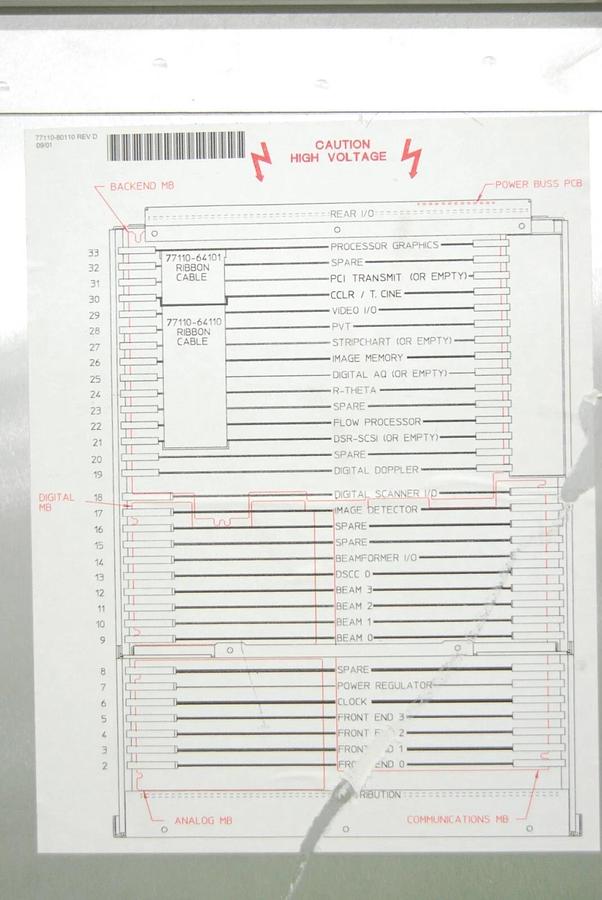 77110-80110 REV D
09/01
CAUTION
HIGH VOLTAGE
BACKEND MB
POWER BUSS PCB
REAR I/O
33 PROCESSOR GRAPHICS
77110-64101
RIBBON
CABLE
32 SPARE
31 PCI TRANSMIT (OR EMPTY)
30 CCLR / T. CINE
29 VIDEO I/O
77110-64110
RIBBON
CABLE
28 PVT
27 STRIPCHART (OR EMPTY)
26 IMAGE MEMORY
25 DIGITAL AQ (OR EMPTY)
24 R-THETA
23 SPARE
22 FLOW PROCESSOR
21 DSR-SCSI (OR EMPTY)
20 SPARE
19 DIGITAL DOPPLER
DIGITAL
MB
18 DIGITAL SCANNER I/O
17 IMAGE DETECTOR
16 SPARE
15 SPARE
14 BEAMFORMER I/O
13 DSCC 0
12 BEAM 3
11 BEAM 2
10 BEAM 1
9 BEAM 0
8 SPARE
7 POWER REGULATOR
6 CLOCK
5 FRONT END 3
4 FRONT END 2
3 FRONT END 1
2 FRONT END 0
RIBUTION
ANALOG MB
COMMUNICATIONS MB